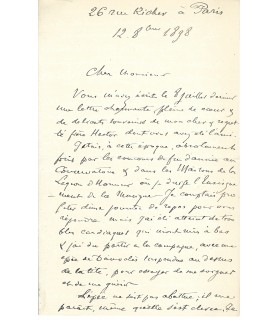 26 rue Richer à Paris
12 8bre 1898
Cher Monsieur
Vous m'avez écrit le 8 juillet dernier
une lettre charmante, pleine de cœur &
de délicats souvenirs de mon cher & regretté
frère Hector dont vous avez été l'ami.
J'étais, à cette époque, absolument
pris par les concours de fin d'année au
Conservatoire & dans les Maisons de la
Légion d'Honneur où je dirige l'enseigne
ment de la Musique. Je comptais pro
fiter d'une journée de repos pour vous
répondre mais j'ai été atteint de trou
bles cardiaques qui m'ont mis à bas
& j'ai dû partir à la campagne, avec une
épée de Damoclès suspendue au dessus
de la tête, pour essayer de me soigner
et de me guérir
L'épée ne doit pas abattre, il me
paraît, même qu'elle s'est